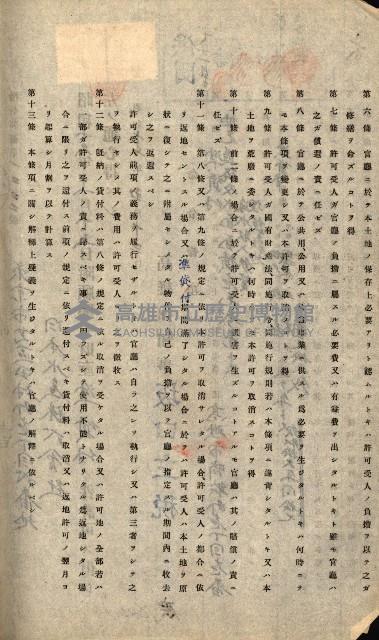 第六條　官廳ニ於テ本土地ノ保存上必要アリト認ムルトキハ許可受人ノ負擔ヲ以テ之ガ
修繕ヲ命ズルコトヲ得
第七條　許可受人ガ官廳ノ負擔ニ屬スル必要費又ハ有益費ヲ出シタルトキト雖モ官廳ハ
之ガ償還ノ責ニ任ゼズ
第八條　官廳ニ於テ公共用、公用又ハ公益事業ニ供スル爲必要ヲ生ジタルトキハ何時ニテ
モ本條項ヲ變更シ又ハ本許可ヲ取消スコトヲ得
第九條　許可受人ガ國有財產法同施行令、同施行規則若ハ本條項ニ違背シタルトキ又ハ本
土地ヲ荒廢ニ委シタルトキハ何時ニテモ本許可ヲ取消スコトヲ得
第十條　前二條ノ場合ニ於テ許可受人ニ損害ヲ生ズルコトアルモ官廳ハ其ノ賠償ノ責ニ
任ゼズ
第十一條　第八條又ハ第九條ノ規定ニ依リ本許可ヲ取消サレタル場合、許可受人ノ都合ニ依
リ返地セントスル場合又ハ準貸付期間滿了シタル場合ニ於テハ許可受人ハ本土地ヲ原
狀ニ復シ之ニ附屬セシメタル物ヲ自己ノ負擔ヲ以テ官廳ノ指定スル期間內ニ收去
シ之ヲ返還スベシ
許可受人前項ノ義務ヲ履行セザルトキハ官廳ハ自ラ之ヲ執行シ又ハ第三者ヲシテ之
ヲ執行セシメ其ノ費用ハ許可受人ヨリ之ヲ徵收ス
第十二條　旣納ノ貸付料ハ第八條ノ規定ニ依ル取消ヲ受ケタル場合又ハ許可地ノ全部若ハ
一部ガ許可受人ノ責ニ歸スベキ事由ニ因ラズシテ使用不能トナリタル爲返地シタル場
合ニ限リ之ヲ還付ス前項ノ規定ニ依リ還付スベキ貸付料ハ取消又ハ返地許可ノ翌月ヨ
リ起算シ月割ヲ以テ計算ス
第十三條　本條項ニ關シ解釋上疑義ヲ生ジタルトキハ官廳ノ解釋ニ依ルベシ
高雄市立歷史博物館
KAOHSIUNG MUSEUM OF HISTORY